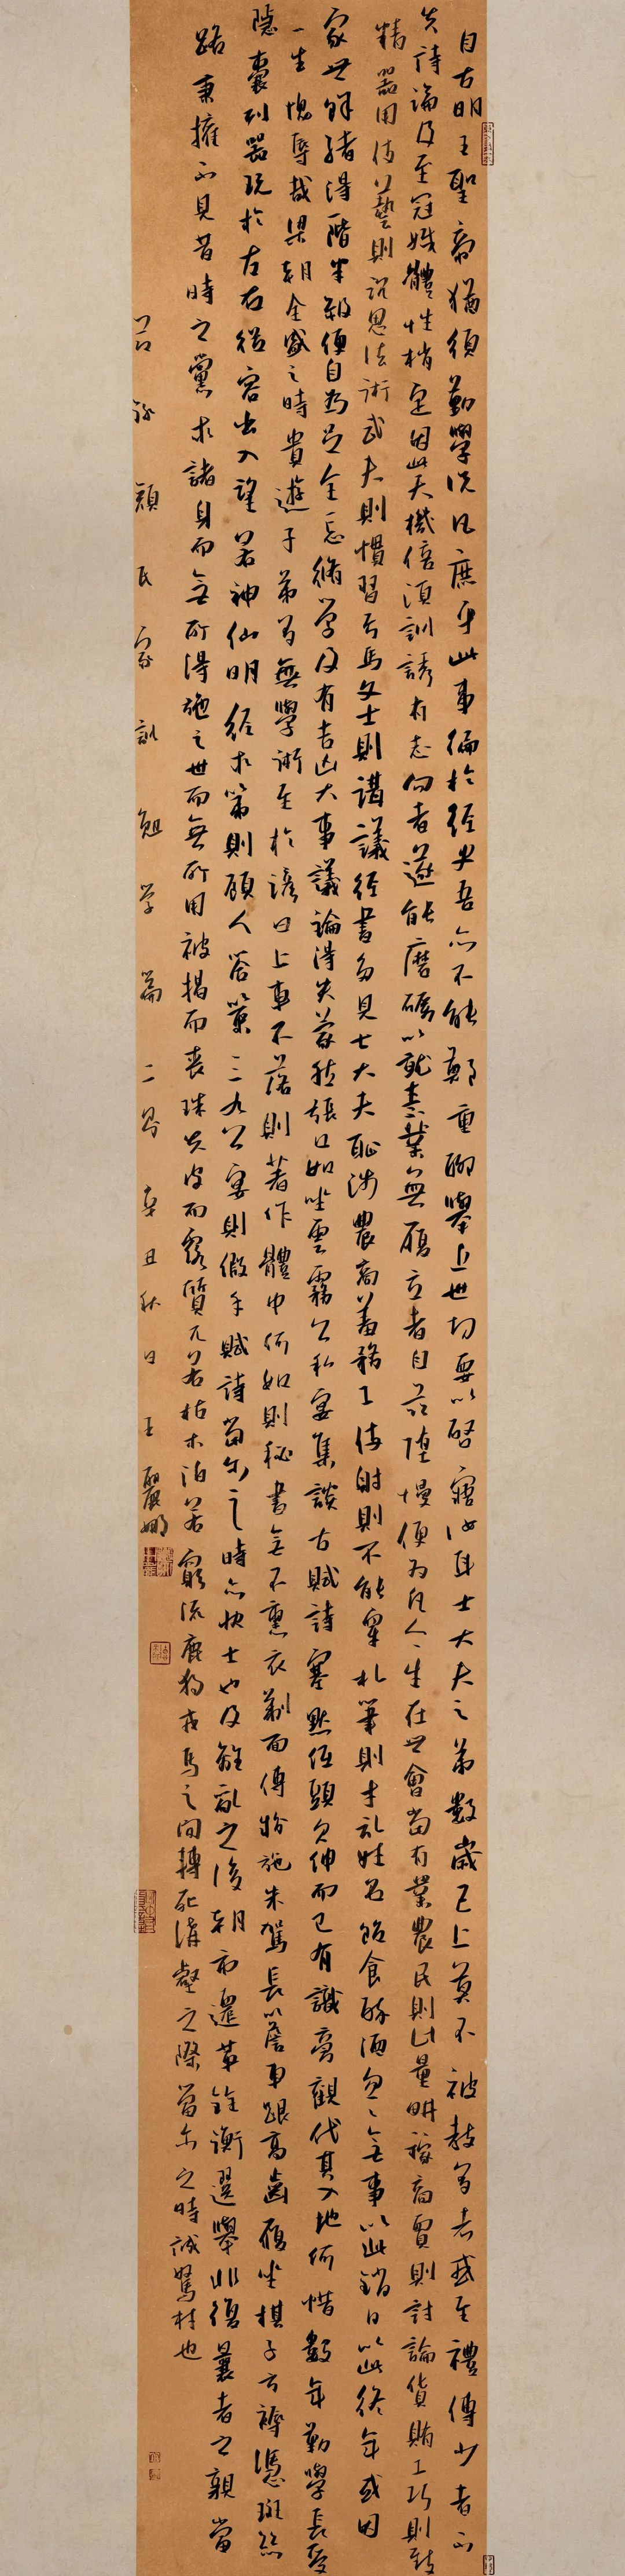 自古明王聖帝猶須勤學況凡庶乎此事徧於經史吾亦不能鄭重聊舉近世切要以啓寤汝耳士大夫之弟數歲已上莫不被教多者或至禮傳少者不
失詩論及至冠婚體性梢定因此天機倍須訓誘有志向者遂能磨礪以就素業無履立者自茲墮慢便為凡人人生在世會當有業農民則計量耕稼商賈則討論貨賄工巧則致
精器用伎藝則沉思法術武夫則慣習弓馬文士則講議經書多見士大夫恥涉農商羞務工伎射則不能穿札筆則才記姓名飽食醉酒忽忽無事以此銷日以此終年或因
家世餘緒得階半級便自為足全忘脩學及有吉凶大事議論得失蒙然張口如坐雲霧公私宴集談古賦詩塞默低頭欠伸而已有識旁觀代其入地何惜數年勤學長受
一生愧辱哉梁朝全盛之時貴遊子弟多無學術至於諺曰上車不落則著作體中何如則秘書無不熏衣剃面傅粉施朱駕長簷車跟高齒屐坐棋子方褥憑斑絲
隱囊列器玩於左右從容出入望若神仙明經求第則顧人答策三九公宴則假手賦詩當尔之時亦快士也及離亂之後朝市遷革銓衡選舉非復曩者之親當
路秉權不見昔時之黨求諸身而無所得施之世而無所用被褐而喪珠失皮而露質兀若枯木泊若窮流鹿獨戎馬之間轉死溝壑之際當尔之時誠駑材也
顏氏家訓勉學篇二則辛丑秋日王麗娜